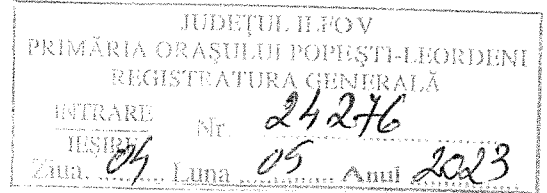 JUDEŢUL ILFOV
PRIMĂRIA ORAŞULUI POPEŞTI-LEORDENI
REGISTRATURA GENERALĂ
INTRARE
IEŞIRE
Nr. 24276
Ziua. 04 Luna 05 Anul 2023